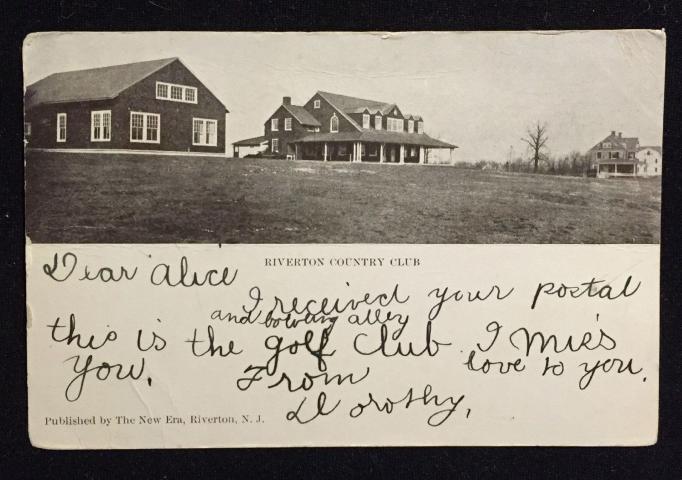 RIVERTON COUNTRY CLUB
Dear Alice
I received your postal
and bowing alley
this is the golf Club I Mies
You. love to you.
From
Dorothy,
Published by The New Era, Riverton, N. J.